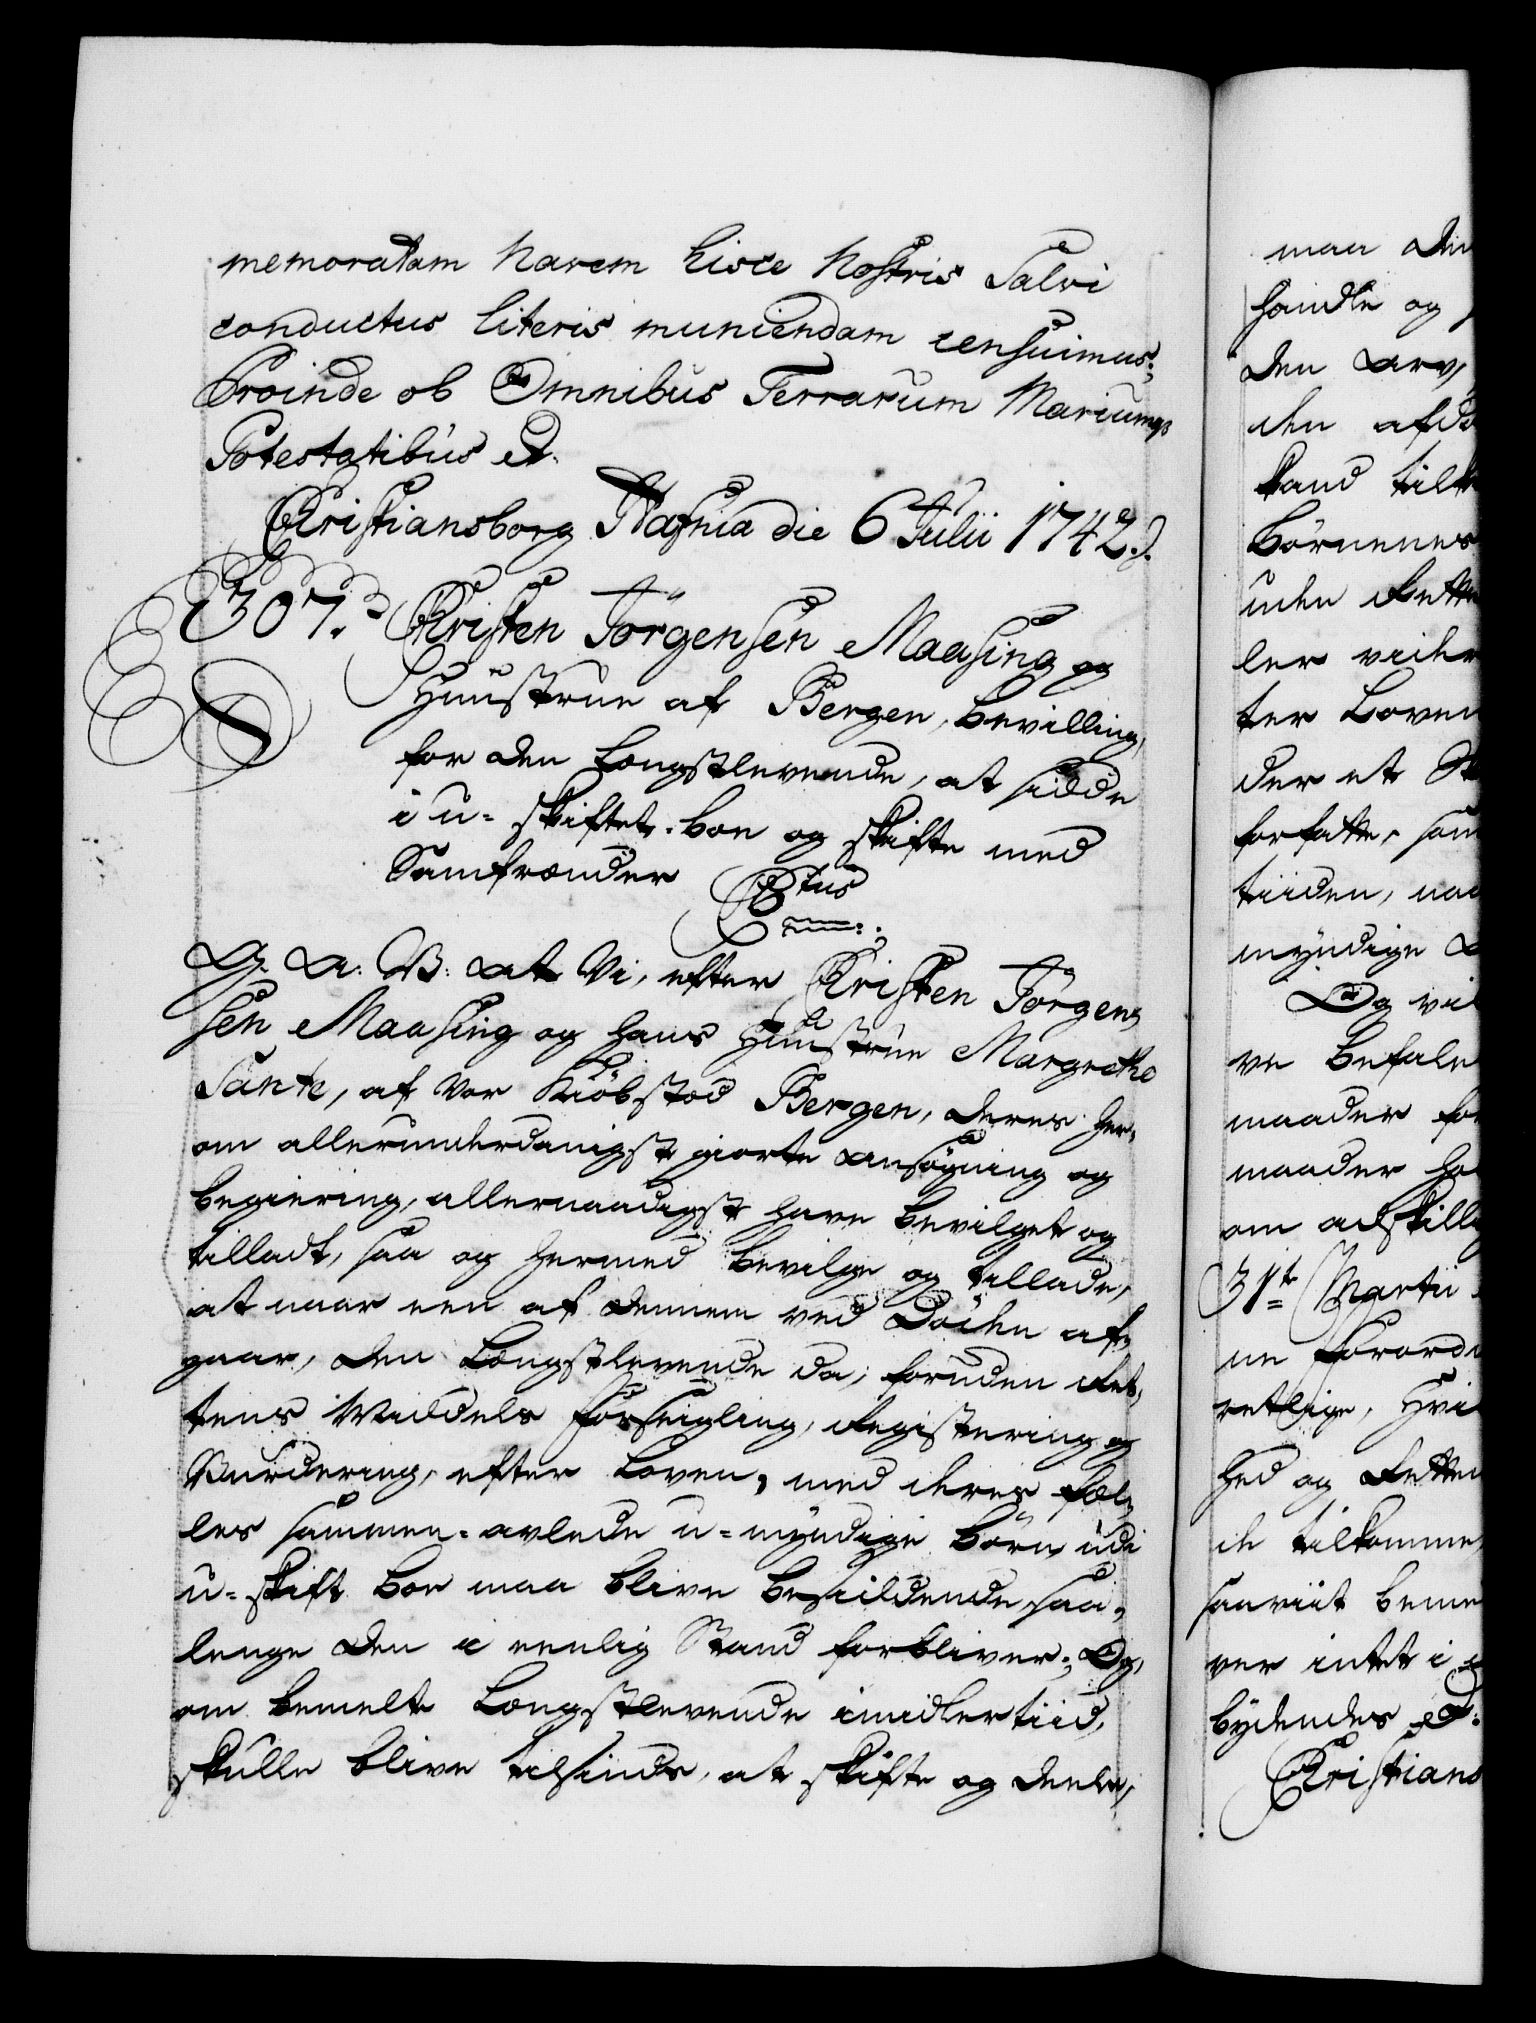 memoratam Navem hisce Nostris Salvi
conductus literis muniendam censuimus;
Proinde ob Omnibus Terrarum Mariumqs
Potestatibus et.
Christiansborg Hafniæ die 6 Julii 1742.
307. Christen Jörgensen Maasing og
Huustrue af Bergen, bevilling,
for den Længstlevende, at sidde
i u-skiftet-boe og skifte med
Samfrænder
Ctus
G. A. V: at Vi, efter Christen Jörgen,
sen Maasing og hans Huustrue Margrethe
Sante, af vor Kiöbstad Bergen, deres her,
om allerunderdanigst giorte ansøgning og
begiering, allernaadigst have bevilget og
tilladt, saa og hermed bevilge og tillade,
at naar een af dennem ved Döden af,
gaar, den Længstlevende da, foruden Ret,
tens Middels Forseigling, Registering og
Vurdering, efter Loven, med deres fæl,
les sammen-avlede u-myndige Börn udi
u-skift boe maa blive besiddende, saa,
lenge den i eenlig Stand forbliver; Og,
om bemelte Længstlevende imidlertiid,
skulle blive tilsinds, at skifte og deele,
maa den
handle og
den arv,
den afdö
kand tilk
Börnenes
uden Rette
ler videre
ter Loven
der et
forfatte, som
tiiden, naa
myndige
Og vil
ve befale
maader for
maader ha
om adskillig
31te Martii
ne Forordn
retlige, Hvi
hed og Retten
de tilkomme
saaviit beme
ver intet i
bydendes et:
Christians